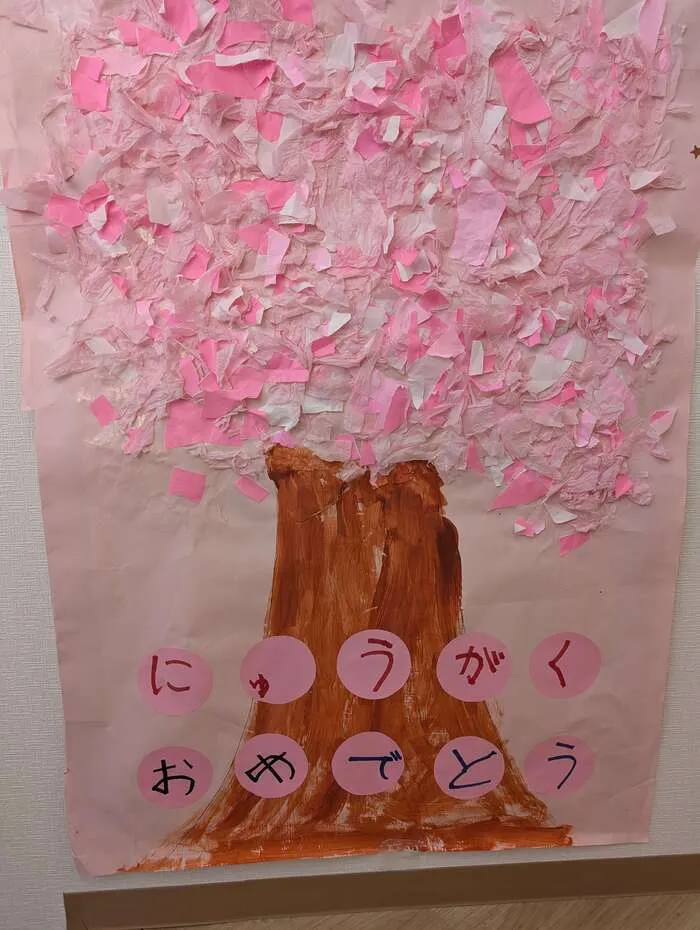 にゅうがく
おめでとう